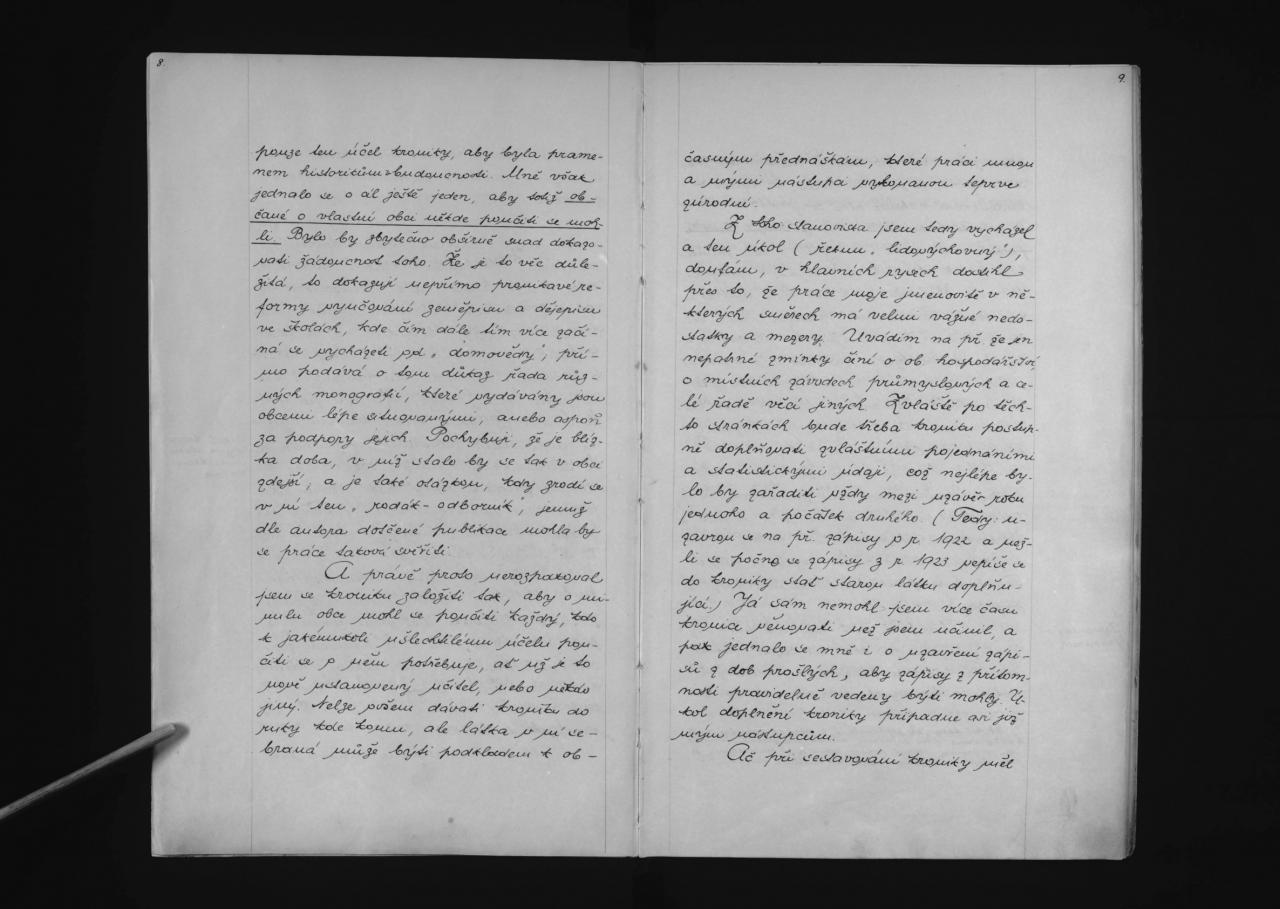 8.
pouze ten účel kroniky, aby byla prame-
nem historickým budoucnosti. Mně však
jednalo se o cíl ještě jeden, aby totiž ob-
čané o vlastní obci někde poučiti se moh-
li. Bylo by zbytečno obšírně snad dokazo-
vati žádoucnost toho. Že je to věc důle-
žitá, to dokazují nepřímo pronikavé re-
formy vyučování zeměpisu a dějepisu
ve školách, kde čím dále tím více začí-
ná se vycházeti od „domovědy", pří-
mo podává o tom důkaz řada růz-
ných monografií, které vydávány jsou
obcemi lépe situovanými, anebo aspoň
za podpory jejich. Pochybuji, že je blíz-
ka doba, v níž stalo by se tak v obci
zdejší, a je také otázkou, kdy zrodí se
v ní ten „rodák-odborník", jemuž
dle autora dotčené publikace mohla by
se práce taková svěřiti.
A právě proto nerozpakoval
jsem se kroniku založiti tak, aby o mi-
nulu obce mohl se poučiti každý, kdo
k jakémukoli ušlechtilému účelu pou-
čiti se o něm potřebuje, ať už je to
nově ustanovený učitel, nebo někdo
jiný. Nelze ovšem dávati kroniku do
ruky kde komu, ale látka v ní se-
braná může býti podkladem k ob-
9.
časným přednáškám, které práci mnou
a mými nástupci vykonanou teprve
zúrodní.
Z toho stanoviska jsem tedy vycházel
a ten úkol (řeknu „lidovýchovný"),
doufám, v hlavních rysech dostihl
přes to, že práce moje jmenovitě v ně-
kterých směrech má velmi vážné nedo-
statky a mezery. Uvádím na př. že jen
nepatrné zmínky činí o ob. hospodářství,
o místních závodech průmyslových a ce-
lé řadě věcí jiných. Zvláště po těch-
to stránkách bude třeba kroniku postup-
ně doplňovati zvláštními pojednáními
a statistickými údaji, což nejlépe by-
lo by zařaditi vždy mezi uzávěr roku
jednoho a počátek druhého. (Tedy: u-
zavrou se na př. zápisy o r. 1922 a než-
li se počnou zápisy z r 1923 vepíše se
do kroniky stať starou látku doplňu-
jící.) Já sám nemohl jsem více času
kronice věnovati než jsem učinil, a
pak jednalo se mně i o uzavření zápi-
sů z dob prošlých, aby zápisy z přítom-
nosti pravidelně vedeny býti mohly. Ú-
kol doplnění kroniky připadne asi již
mým nástupcům.
Ač při sestavování kroniky měl